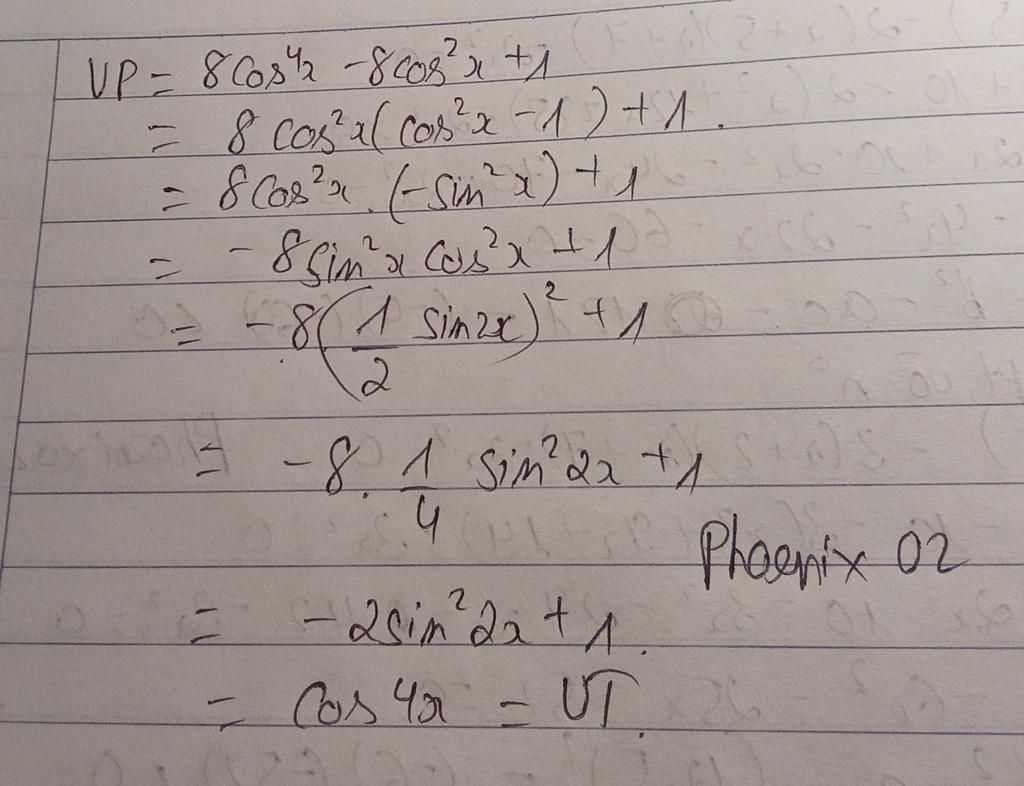 VP = 8cos⁴x - 8cos²x + 1
= 8cos²x(cos²x - 1) + 1.
= 8cos²x.(-sin²x) + 1
= -8sin²x cos²x + 1
= -8(1/2 sin2x)² + 1
= -8. 1/4 sin²2x + 1
Phoenix 02
= -2sin²2x + 1.
= cos4x = VT.